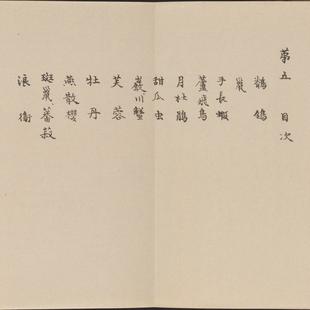 第五 目次
鶺鴒
鼠
手長蝦
蘆飛鳥
月杜鵑
甜瓜虫
巌川蟹
芙蓉
牡丹
燕散櫻
斑鼠蕃菽
浪